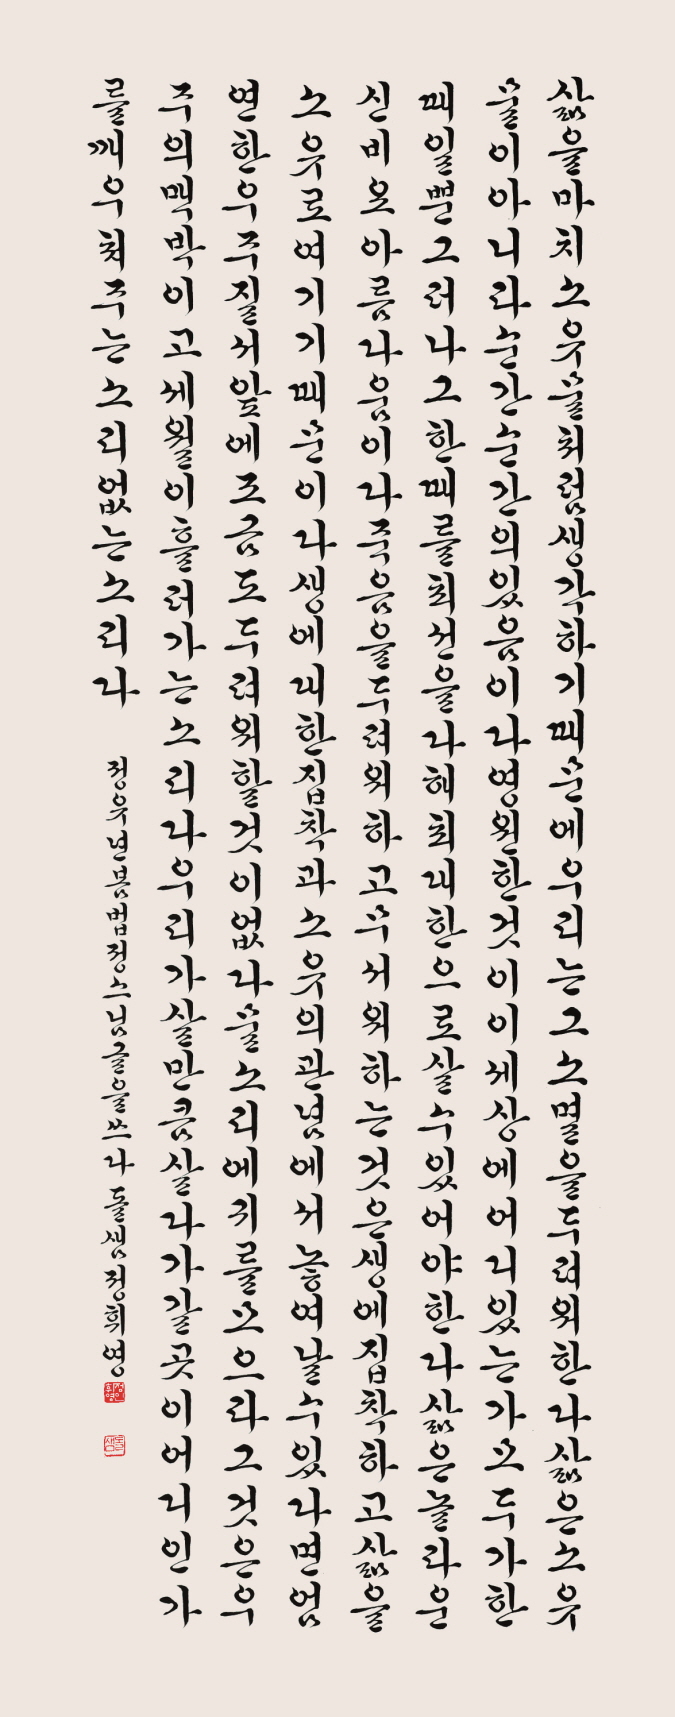 삶을마치소유물처럼생각하기때문에우리는그소멸을두려워한다삶은소유
물이아니라순간순간의있음이다영원한것이이세상에어디있는가모두가한
때일뿐그러나그한때를최선을다해최대한으로살수있어야한다삶은놀라운
신비요아름다움이다죽음을두려워하고무서워하는것은생에집착하고삶을
소유로여기기때문이다생에대한집착과소유의관념에서놓여날수있다면엄
연한우주질서앞에조금도두려워할것이없다물소리에귀를모으라그것은우
주의맥박이고세월이흘러가는소리다우리가살만큼살다가갈곳이어디인가
를깨우쳐주는소리없는소리다
정유년봄법정스님글을쓰다 돌샘정휘영
돌샘